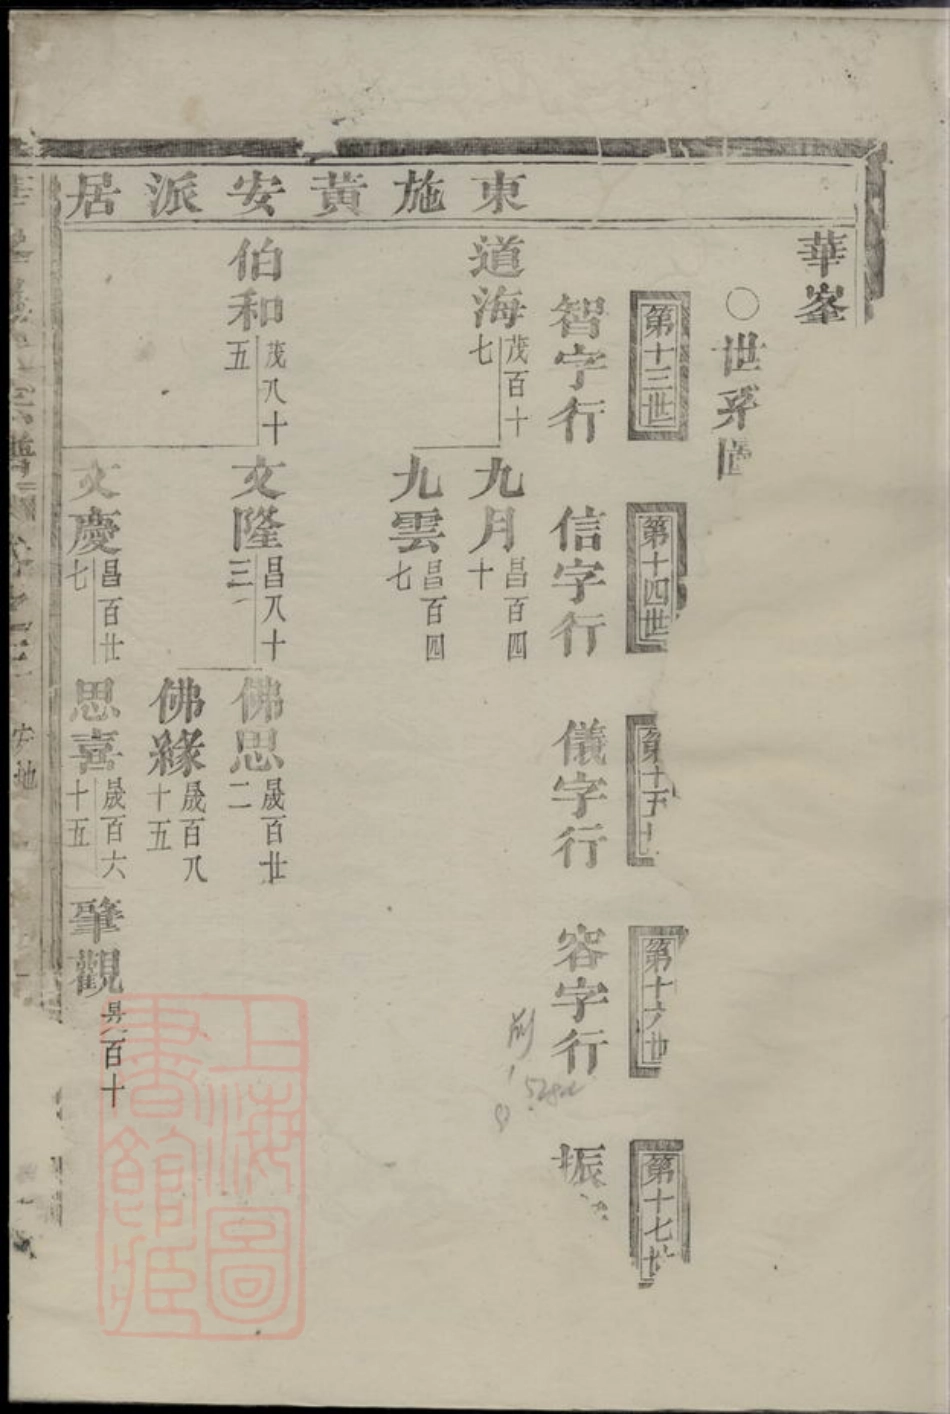 東施黃安派居
華峯
○世系圖
第十三世
第十四世
第十五
第十六世
第十七世
智字行
信字行
儀字行
容字行
振
道海
茂百十
七
九月
昌百四
十
九雲
昌百四
七
伯和
茂八十
五
文隆
昌八十
三
佛思
晟百廿
二
佛緣
晟百八
十五
文慶
昌百廿
七
思喜
晟百六
十五
肇觀
昇百十
安地
上海圖
書館藏